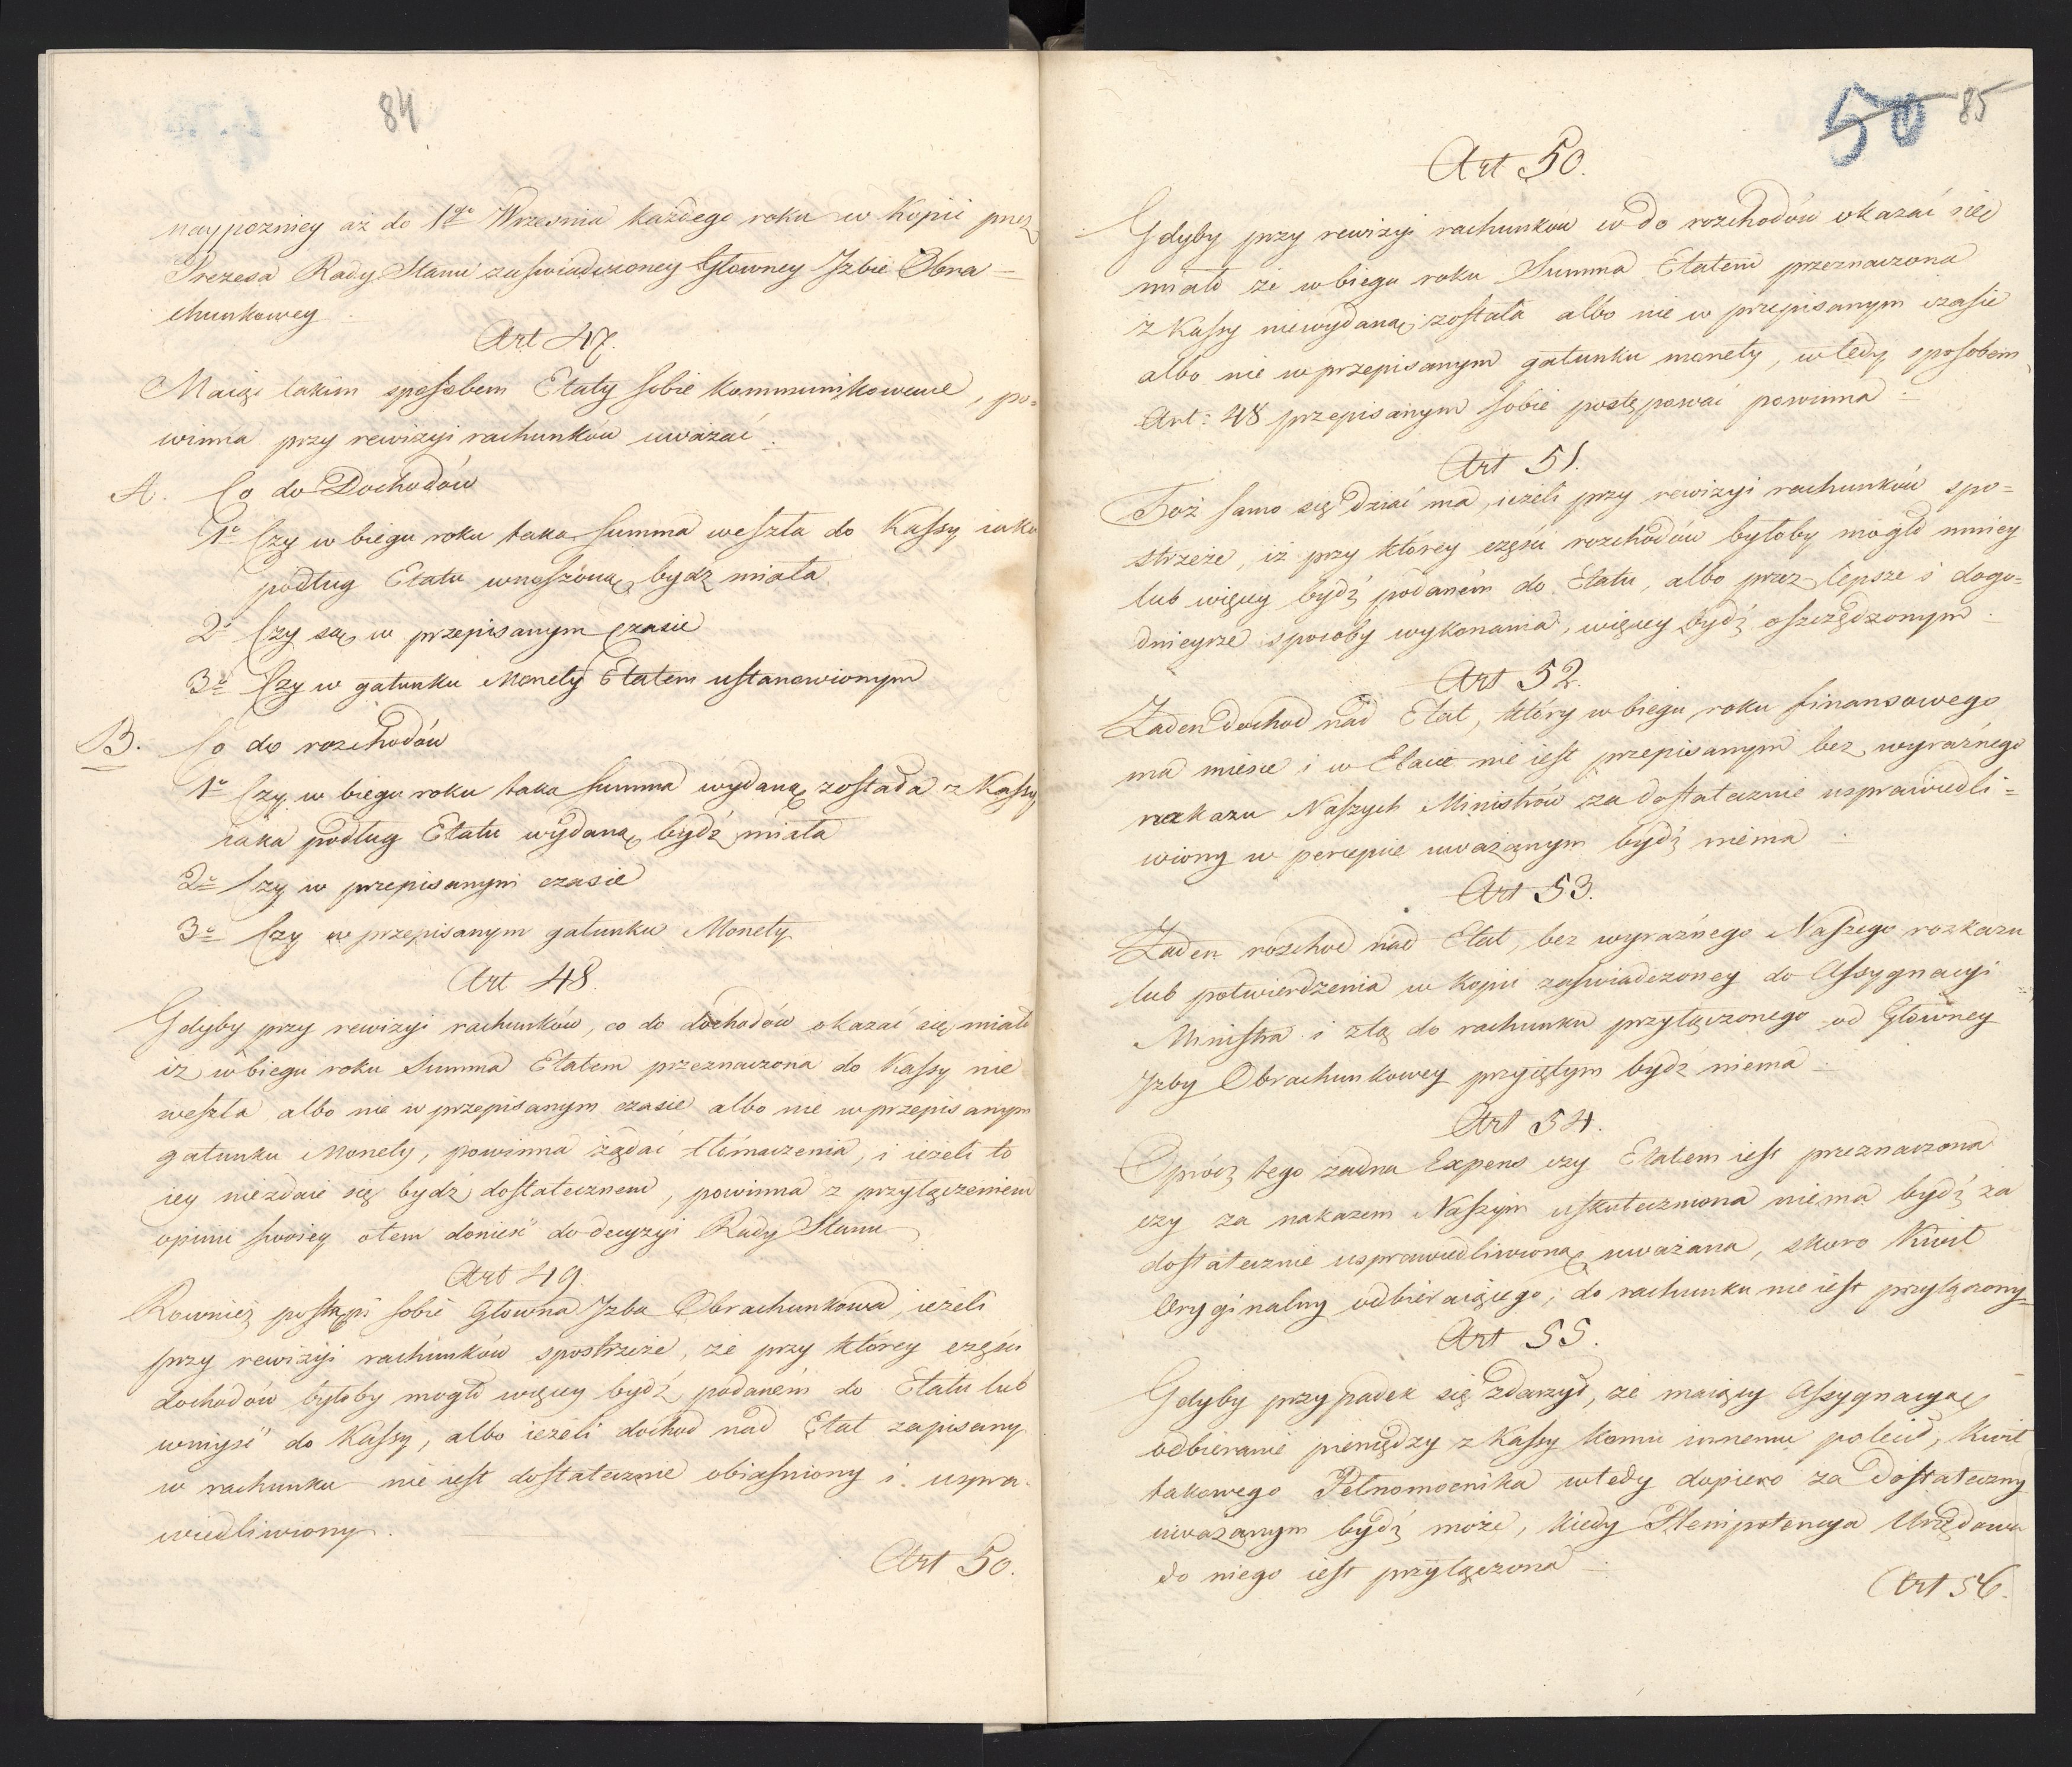 84
naypozniey aż do 1go Wrzesnia każdego roku w Kopii przez
Prezesa Rady Stanu zaswiadczoney Głowney Izbie Obra=
chunkowey
Art 47.
Maiąc takim sposobem Etaty sobie kommunikowane, po=
winna przy rewizyi rachunków uważać.
A. Co do Dochodów
1o Czy w biegu roku taka Summa weszła do Kassy iaka
podług Etatu wnoszoną bydz miała
2o Czy są w przepisanym Czasie
3o Czy w gatunku Monety Etatem ustanowionym
B. Co do rozchodów
1o Czy w biegu roku taka Summa wydaną została z Kassy
iaka podług Etatu wydaną bydź miała
2o Czy w przepisanym czasie
3o Czy w przepisanym gatunku Monety
Art 48.
Gdyby przy rewizyi rachunków, co do dochodów okazać się miało
iż w biegu roku Summa Etatem przeznaczona do Kassy nie
weszła albo nie w przepisanym czasie albo nie w przepisanym
gatunku Monety, powinna żądać tłómaczenia, i ieżeli to
iey niezdaie się bydź dostatecznem, powinna z przyłączeniem
opinii swoiey otem donieść do decyzyi Rady Stanu
Art 49.
Rownież postąpi sobie Głowna Izba Obrachunkowa, ieżeli
przy rewizyi rachunków spostrzeże, że przy którey części
dochodów byłoby mogło więcey bydź podaném do Etatu lub
wniyść do Kassy, albo ieżeli dochod nad Etat zapisany
w rachunku nie iest dostatecznie obiasniony i uspra-
wiedliwiony.
Art 50.
50 85
Art 50.
Gdyby przy rewizyi rachunkow co do rozchodów okazać się
miało że w biegu roku Summa Etatem przeznaczona
z Kassy niewydaną została albo nie w przepisanym czasie
albo nie w przepisanym gatunku monety, wtedy sposobem
Art: 48 przepisanym sobie postępować powinna
Art 51.
Toż samo się dziać ma, ieżeli przy rewizyi rachunków spo=
strzeże, iż przy którey części rozchodów byłoby mogło mniey
lub więcey bydź podaném do Etatu, albo przez lepsze i dogo=
dnieysze sposoby wykonania, więcey bydź oszczędzonym
Art 52.
Żaden dochod nad Etat, który w biegu roku finansowego
ma miesce i w Etacie nie iest przepisanym bez wyraźnego
nakazu Naszych Ministrów za dostatecznie usprawiedli=
wiony w percepcie uważanym bydź niema
Art 53.
Żaden rozchod nad Etat, bez wyraźnego Naszego rozkazu
lub potwierdzenia w kopii zaświadczoney do Assygnacyi
Ministra i ztą do rachunku przyłączonego od Głowney
Izby Obrachunkowey przyiętym bydź niema
Art 54.
Oprócz tego żadna Expens czy Etatem iest przeznaczona
czy za nakazem Naszym uskuteczniona niema bydź za
dostatecznie usprawiedliwioną uważana, skoro Kwit
Oryginalny odbieraiącego, do rachunku nie iest przyłączony
Art 55.
Gdyby przypadek się zdarzył, że maiący Assygnacyą
odbieranie pieniędzy z Kassy komu innemu polecił, Kwit
takowego Pełnomocnika wtedy dopiero za dostateczny
uważanym bydź może, kiedy Plenipotencya Urzędowa
do niego iest przyłączona
Art 56.